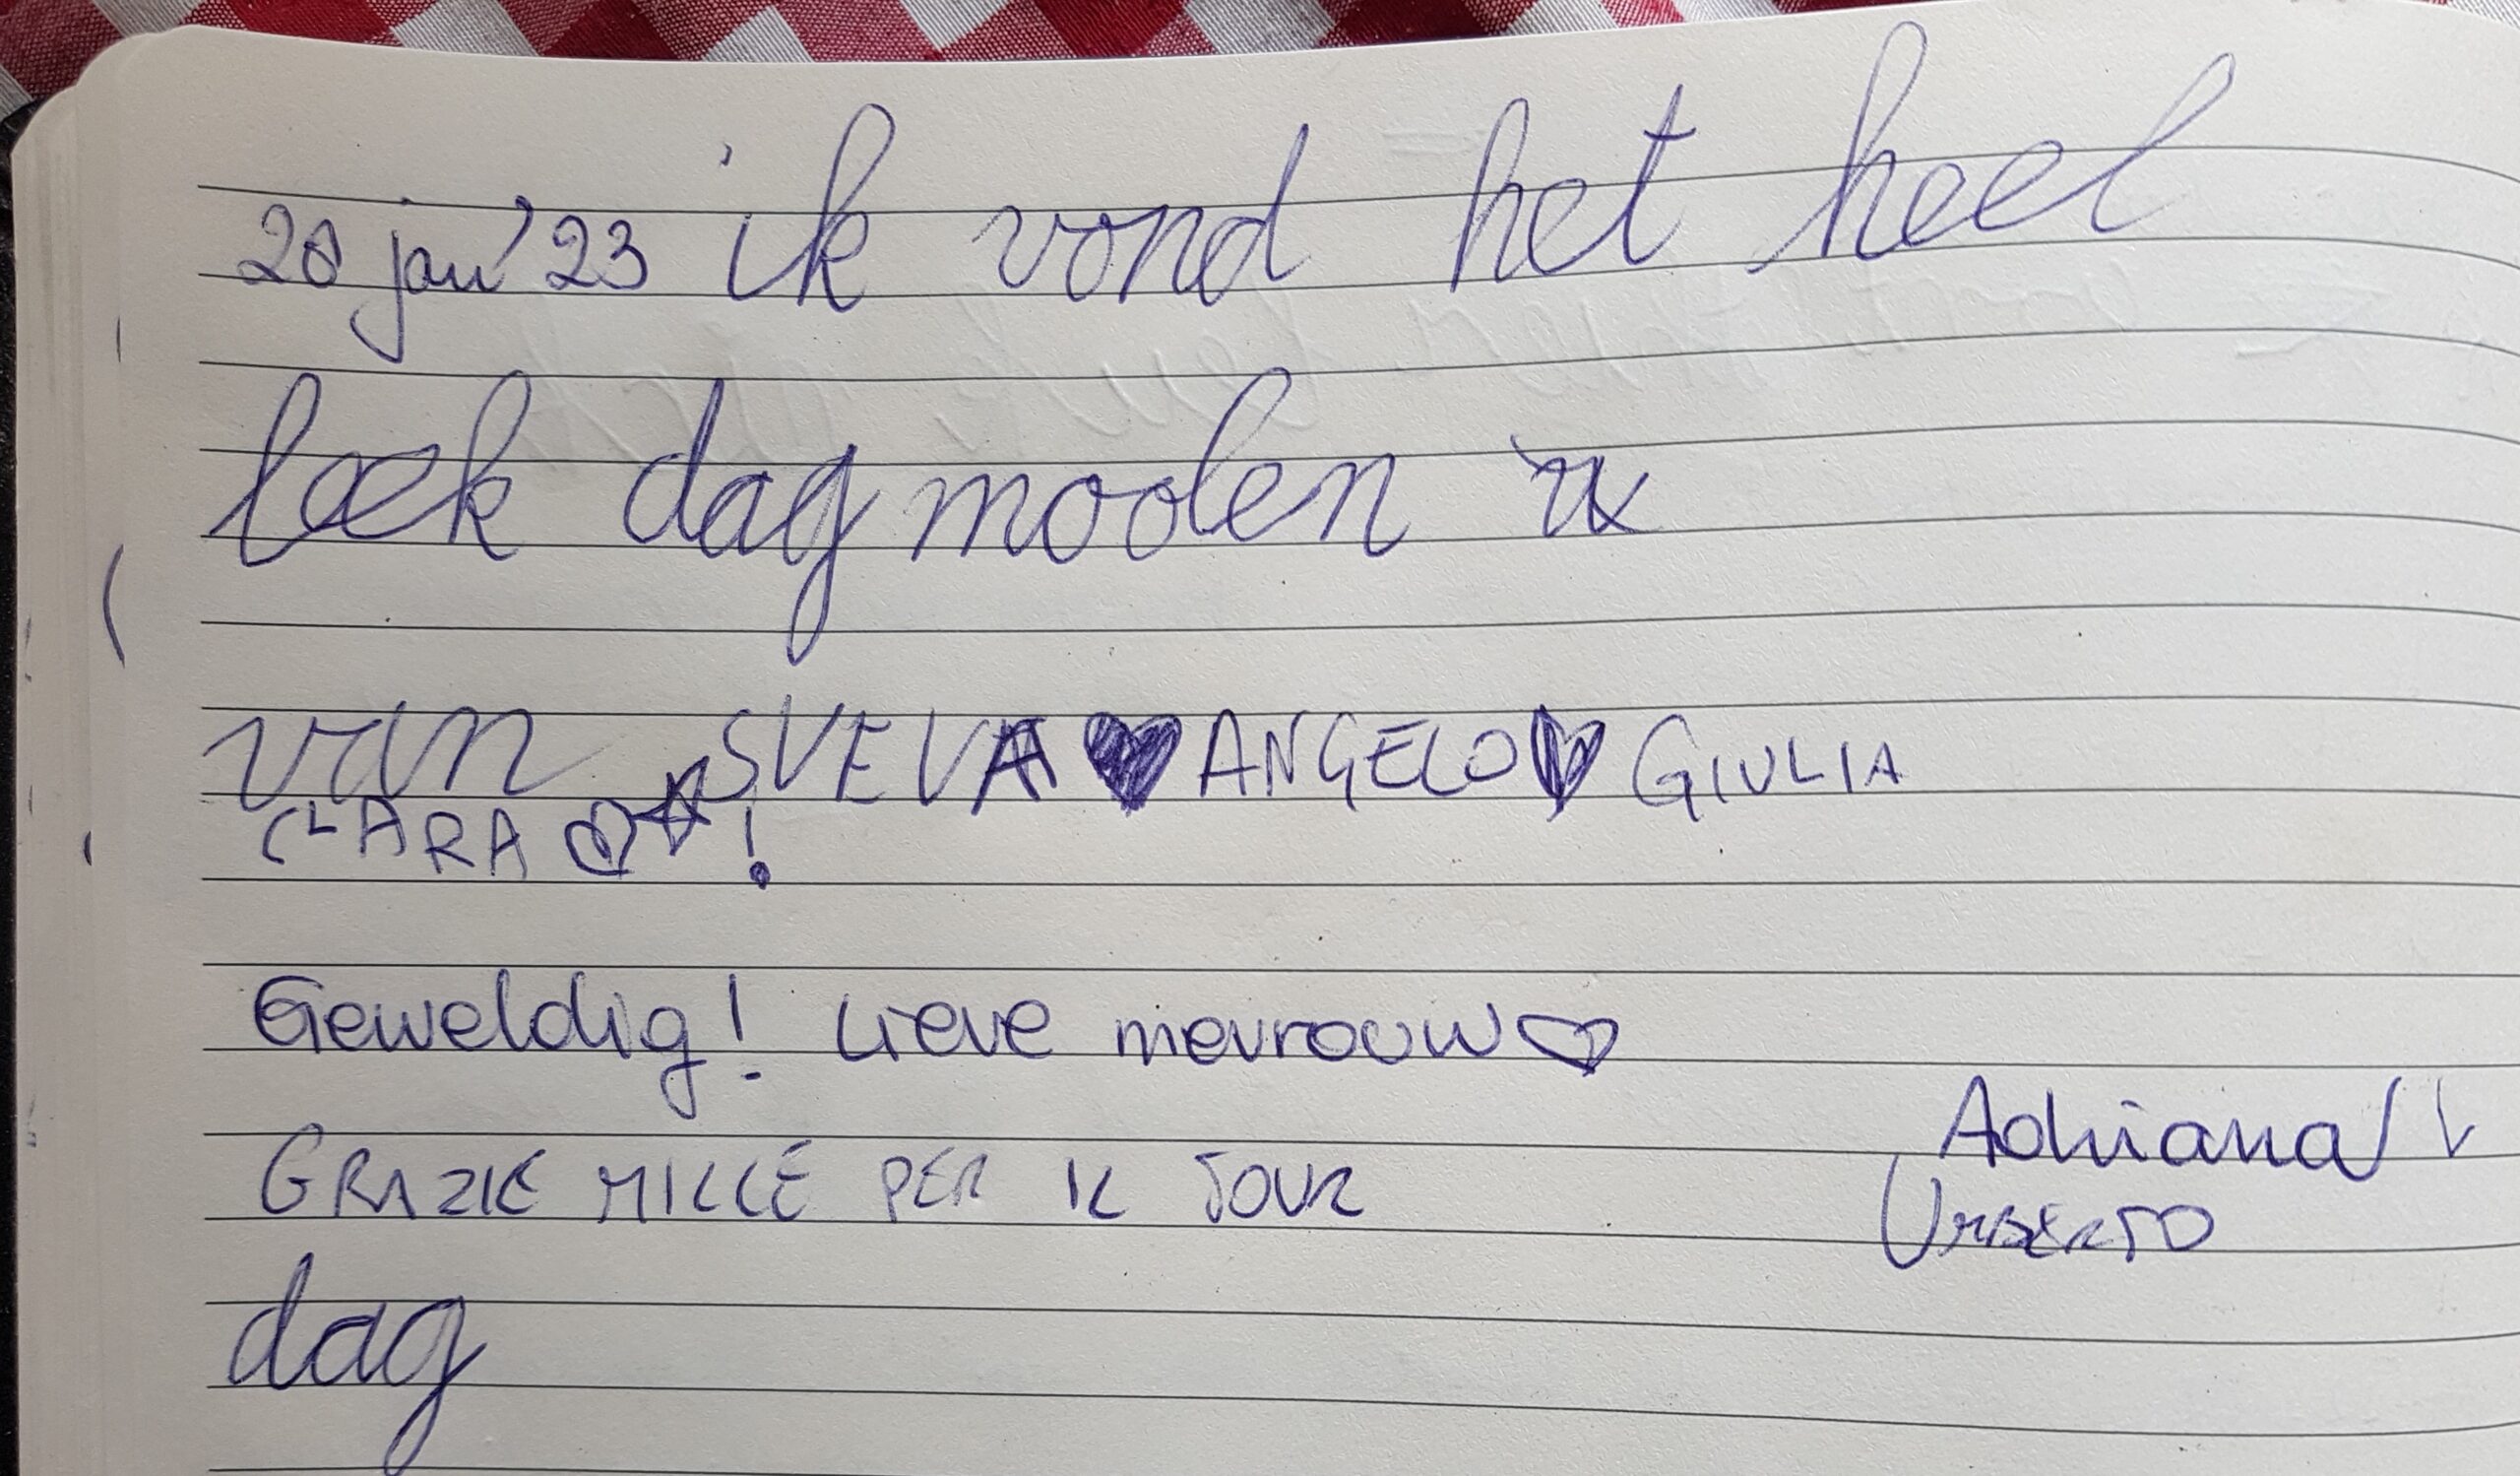 28 jan '23 ik vond het heel
loek dag moolen
van SVEVA ♥ ANGELO ♥ GIULIA
CLARA ♡ ☆ !
Geweldig! Lieve mevrouw ♡
Adriana
GRAZIE MILLE PER IL TOUR
UMBERTO
dag